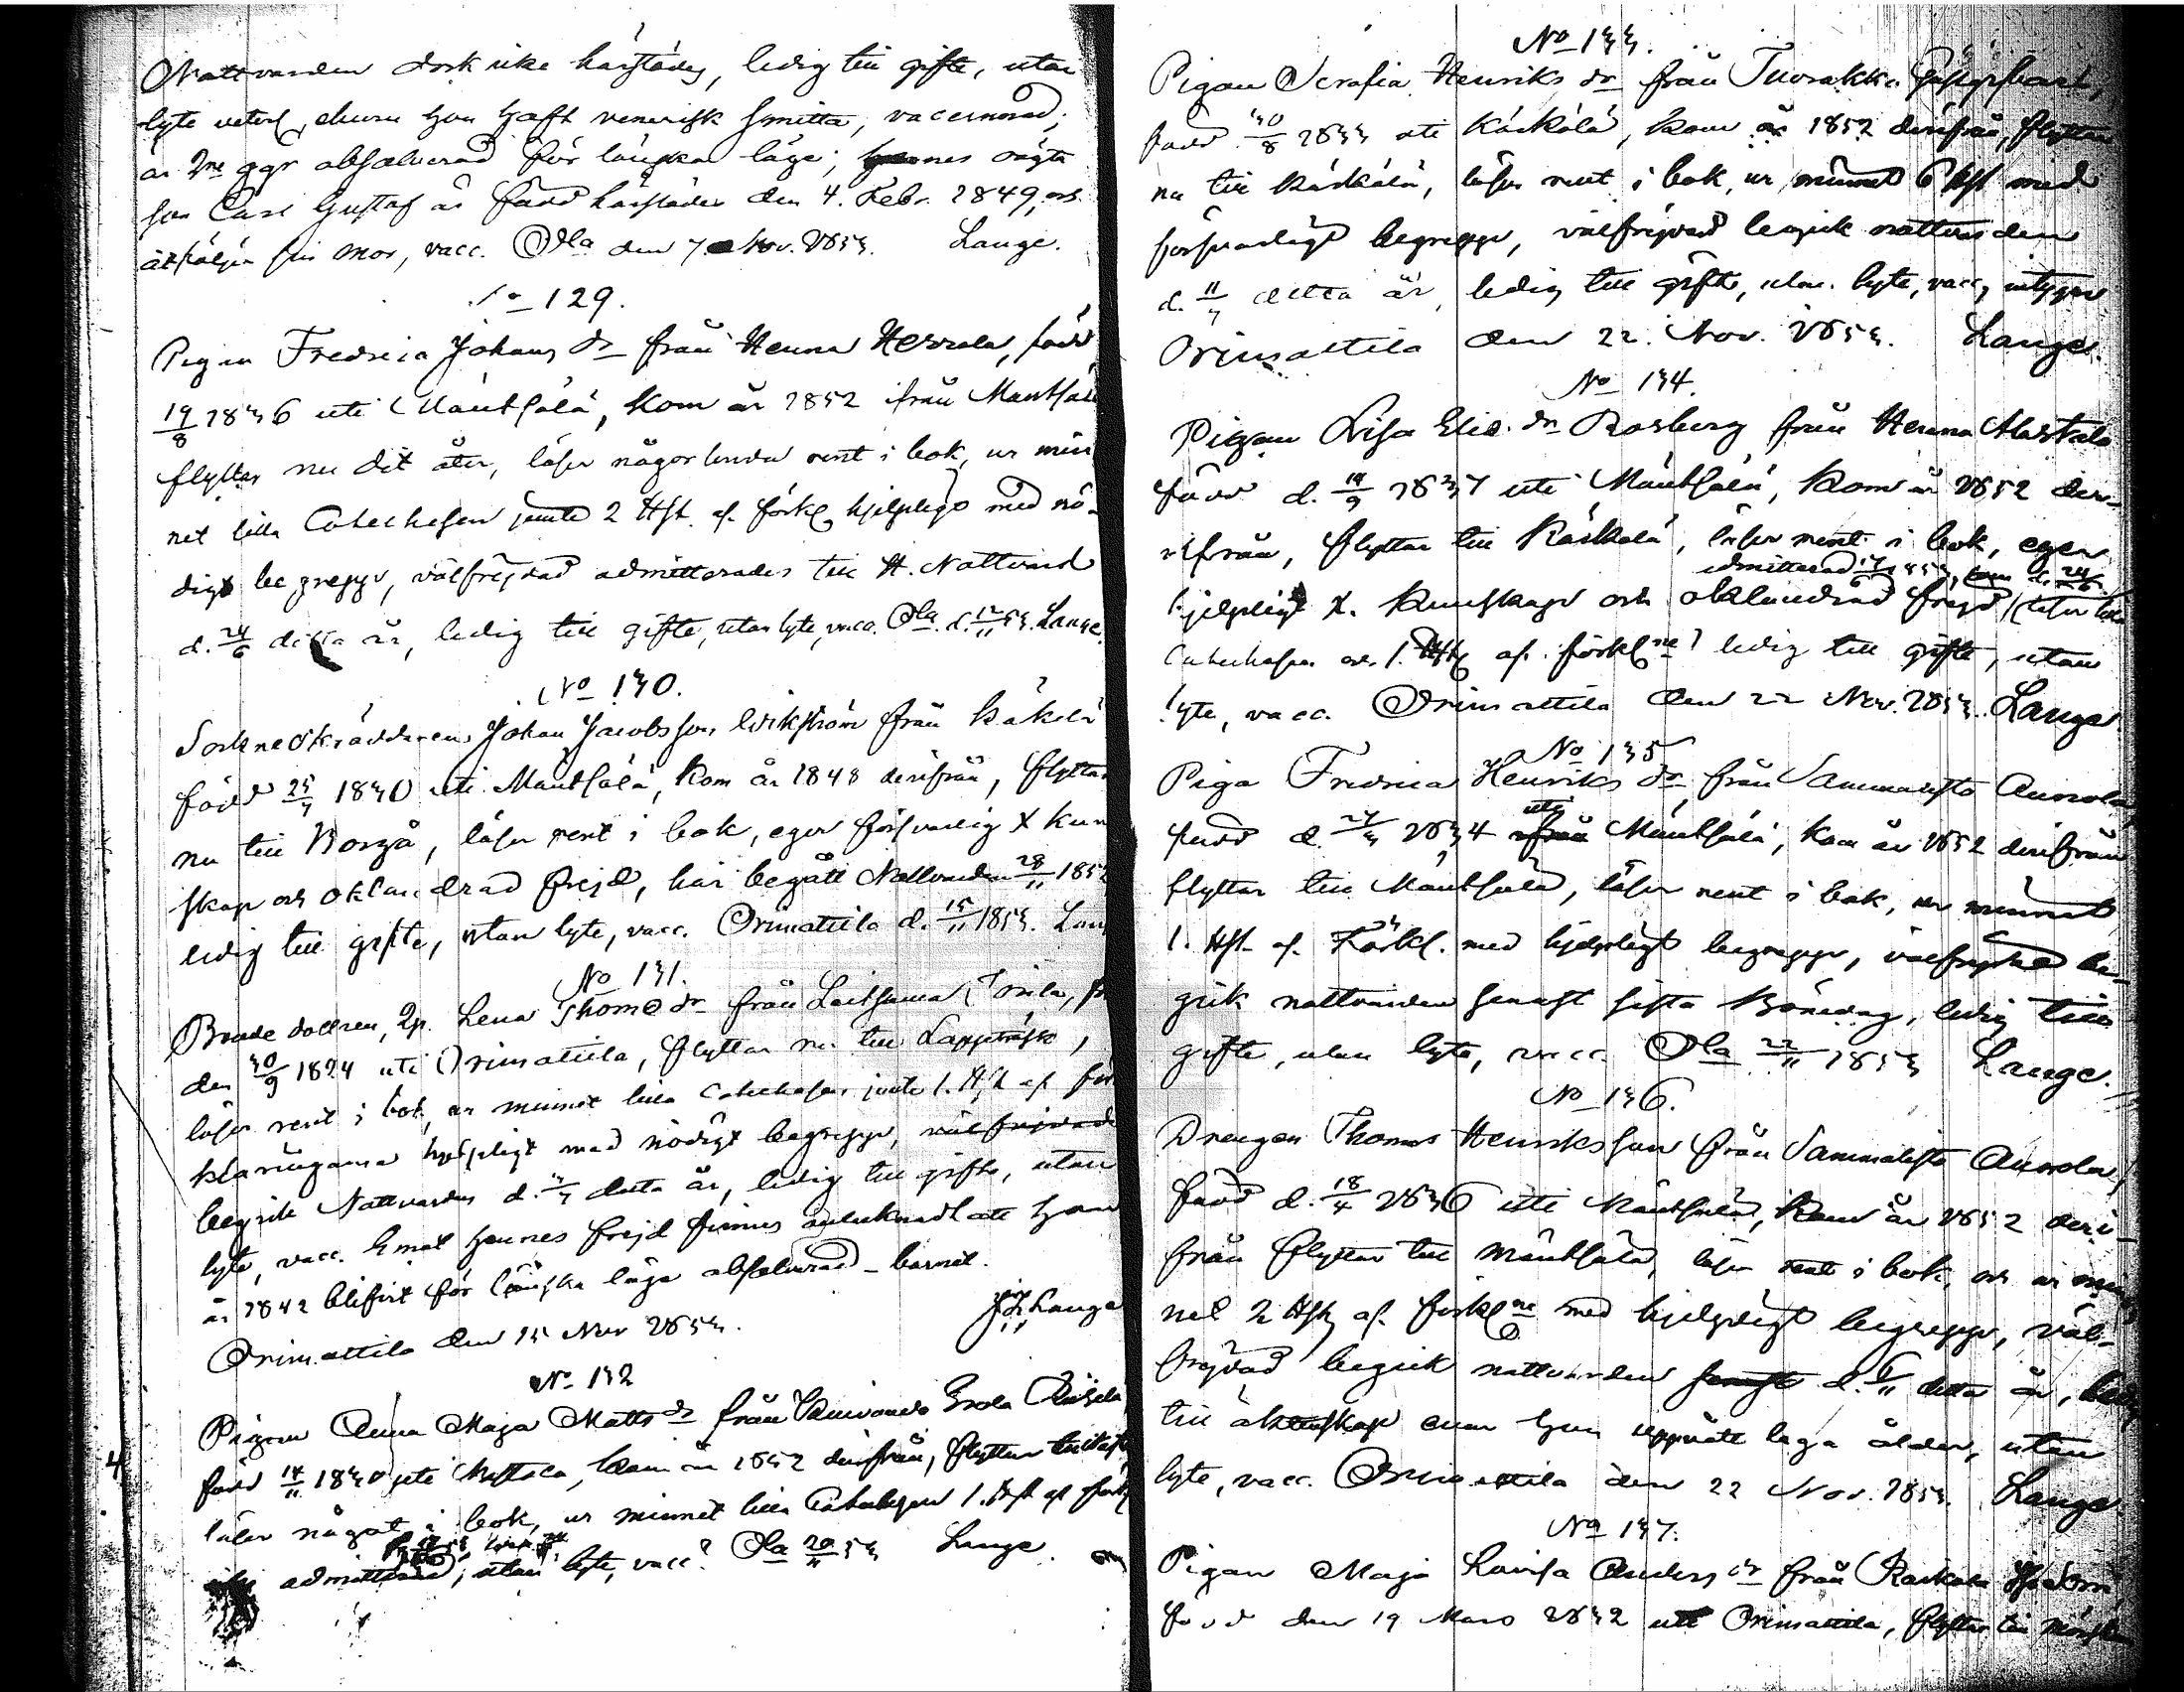 Nattvarden dock icke härstädes, ledig till gifte, utan
lyte veterl., churu hon haft venerisk smitta, vaccinerad;
är 2ne ggr absolverad för lönska läge; hennes oägta
son Carl Gustaf är född härstädes den 4. Febr. 1849, och
åtföljer sin mor, vacc. Ola den 7. Nov. 1853. Lange.
No 129.
Pigan Fredrica Johans dr från Henna Herrala, född
19/8 1836 uti Mäntsälä, kom år 1852 ifrån Mäntsälä
flyttar nu dit åter, läser någorlunda rent i bok, ur min-
net lilla Catechesen jemte 2 Hft. af förkl. hjelpligt med nö-
digt begrepp, välfrejdad admitterades till H. Nattvard
d. 24/6 detta år, ledig till gifte, utan lyte, vacc. Ola. d. 12/11 53. Lange.
No 130.
Sockneskräddaren Johan Jacobsson Wikström från Käkelä
född 25/7 1830 uti Mäntsälä, kom år 1848 derifrån, flyttar
nu till Borgå, läser rent i bok, eger försvarlig X kun
skap och oklandrad frejd, har begått Nattvarden 28/11 1852
ledig till gifte, utan lyte, vacc. Orimattila d. 15/11 1853. Lan
No 131.
Lena Thome dr från Leitsama Tönila,
den 30/9 1824 uti Orimattila, flyttar nu till Lappträsk,
läser rent i bok, ur minnet lilla Catechesen jemte 1. Hft af för
klaringarna hjelpligt med nödigt begrepp, välfrejdade
begick Nattvarden d. detta år, ledig till gifte, utan
lyte, vacc. Emot hennes frejd finnes antecknadt att hon
år 1842 blifvit för lönska läge absolverad
Orimattila den 15 Nov 1853. Lange
No 132
Pigan Anna Maja Matts dr från
född 14/11 1830 uti kom år 1852 derifrån, flyttar
läser något i bok, ur minnet lilla Catechesen 1. Hft af förkl
admitterad, utan lyte, vacc. Ola 20/11 53 Lange.
No 133.
Pigan Serafia Henriks dr från Tuorakka
född 30/8 1833 uti Kärkölä, kom år 1852 derifrån, flyttar
nu till Kärkölä, läser rent i bok, ur minnet 6 Hft med
försvarligt begrepp, välfrejdad begick nattvarden
d. 11/7 detta år, ledig till gifte, utan lyte, vacc, intygar
Orimattila den 22. Nov. 1853. Lange.
No 134.
Pigan Lisa Elis. dr Rosberg från Henna
född d. 14/9 1837 uti Mäntsälä, kom år 1852 der-
ifrån, flyttar till Kärkölä, läser rent i bok, eger
admitterad
hjelpligt X. kunskap och oklandrad frejd (läser lilla
Catechesen och 1. Hft af förkl.ne) ledig till gifte, utan
lyte, vacc. Orimattila den 22 Nov. 1853. Lange.
No 135
Piga Fredrica Henriks dr från Sammalisto Aurola
uti
född d. 24/3 1834 från Mäntsälä, kom år 1852 derifrån
flyttar till Mäntsälä, läser rent i bok, ur minnet
1. Hft af Förkl. med hjelpligt begrepp, välfrejdad be-
gick nattvarden senast sista Bönedag, ledig till
gifte, utan lyte, vacc. Ola 22/11 1853 Lange.
No 136.
Drengen Thomas Henriksson från Sammalisto Aurola,
född d. 18/4 1836 uti Mäntsälä, kom år 1852 deri-
från flyttar till Mäntsälä, läser rent i bok, och ur min
net 2 Hft af förkl.ne med hjelpligt begrepp, väl-
frejdad begick nattvarden senast d. detta år, ledig
till äktenskap enär han uppnått laga ålder, utan
lyte, vacc. Orimattila den 22 Nov. 1853. Lange.
No 137.
Pigan Maja Lovisa Anders dr från
född den 19 Mars 1832 uti Orimattila, flyttar till